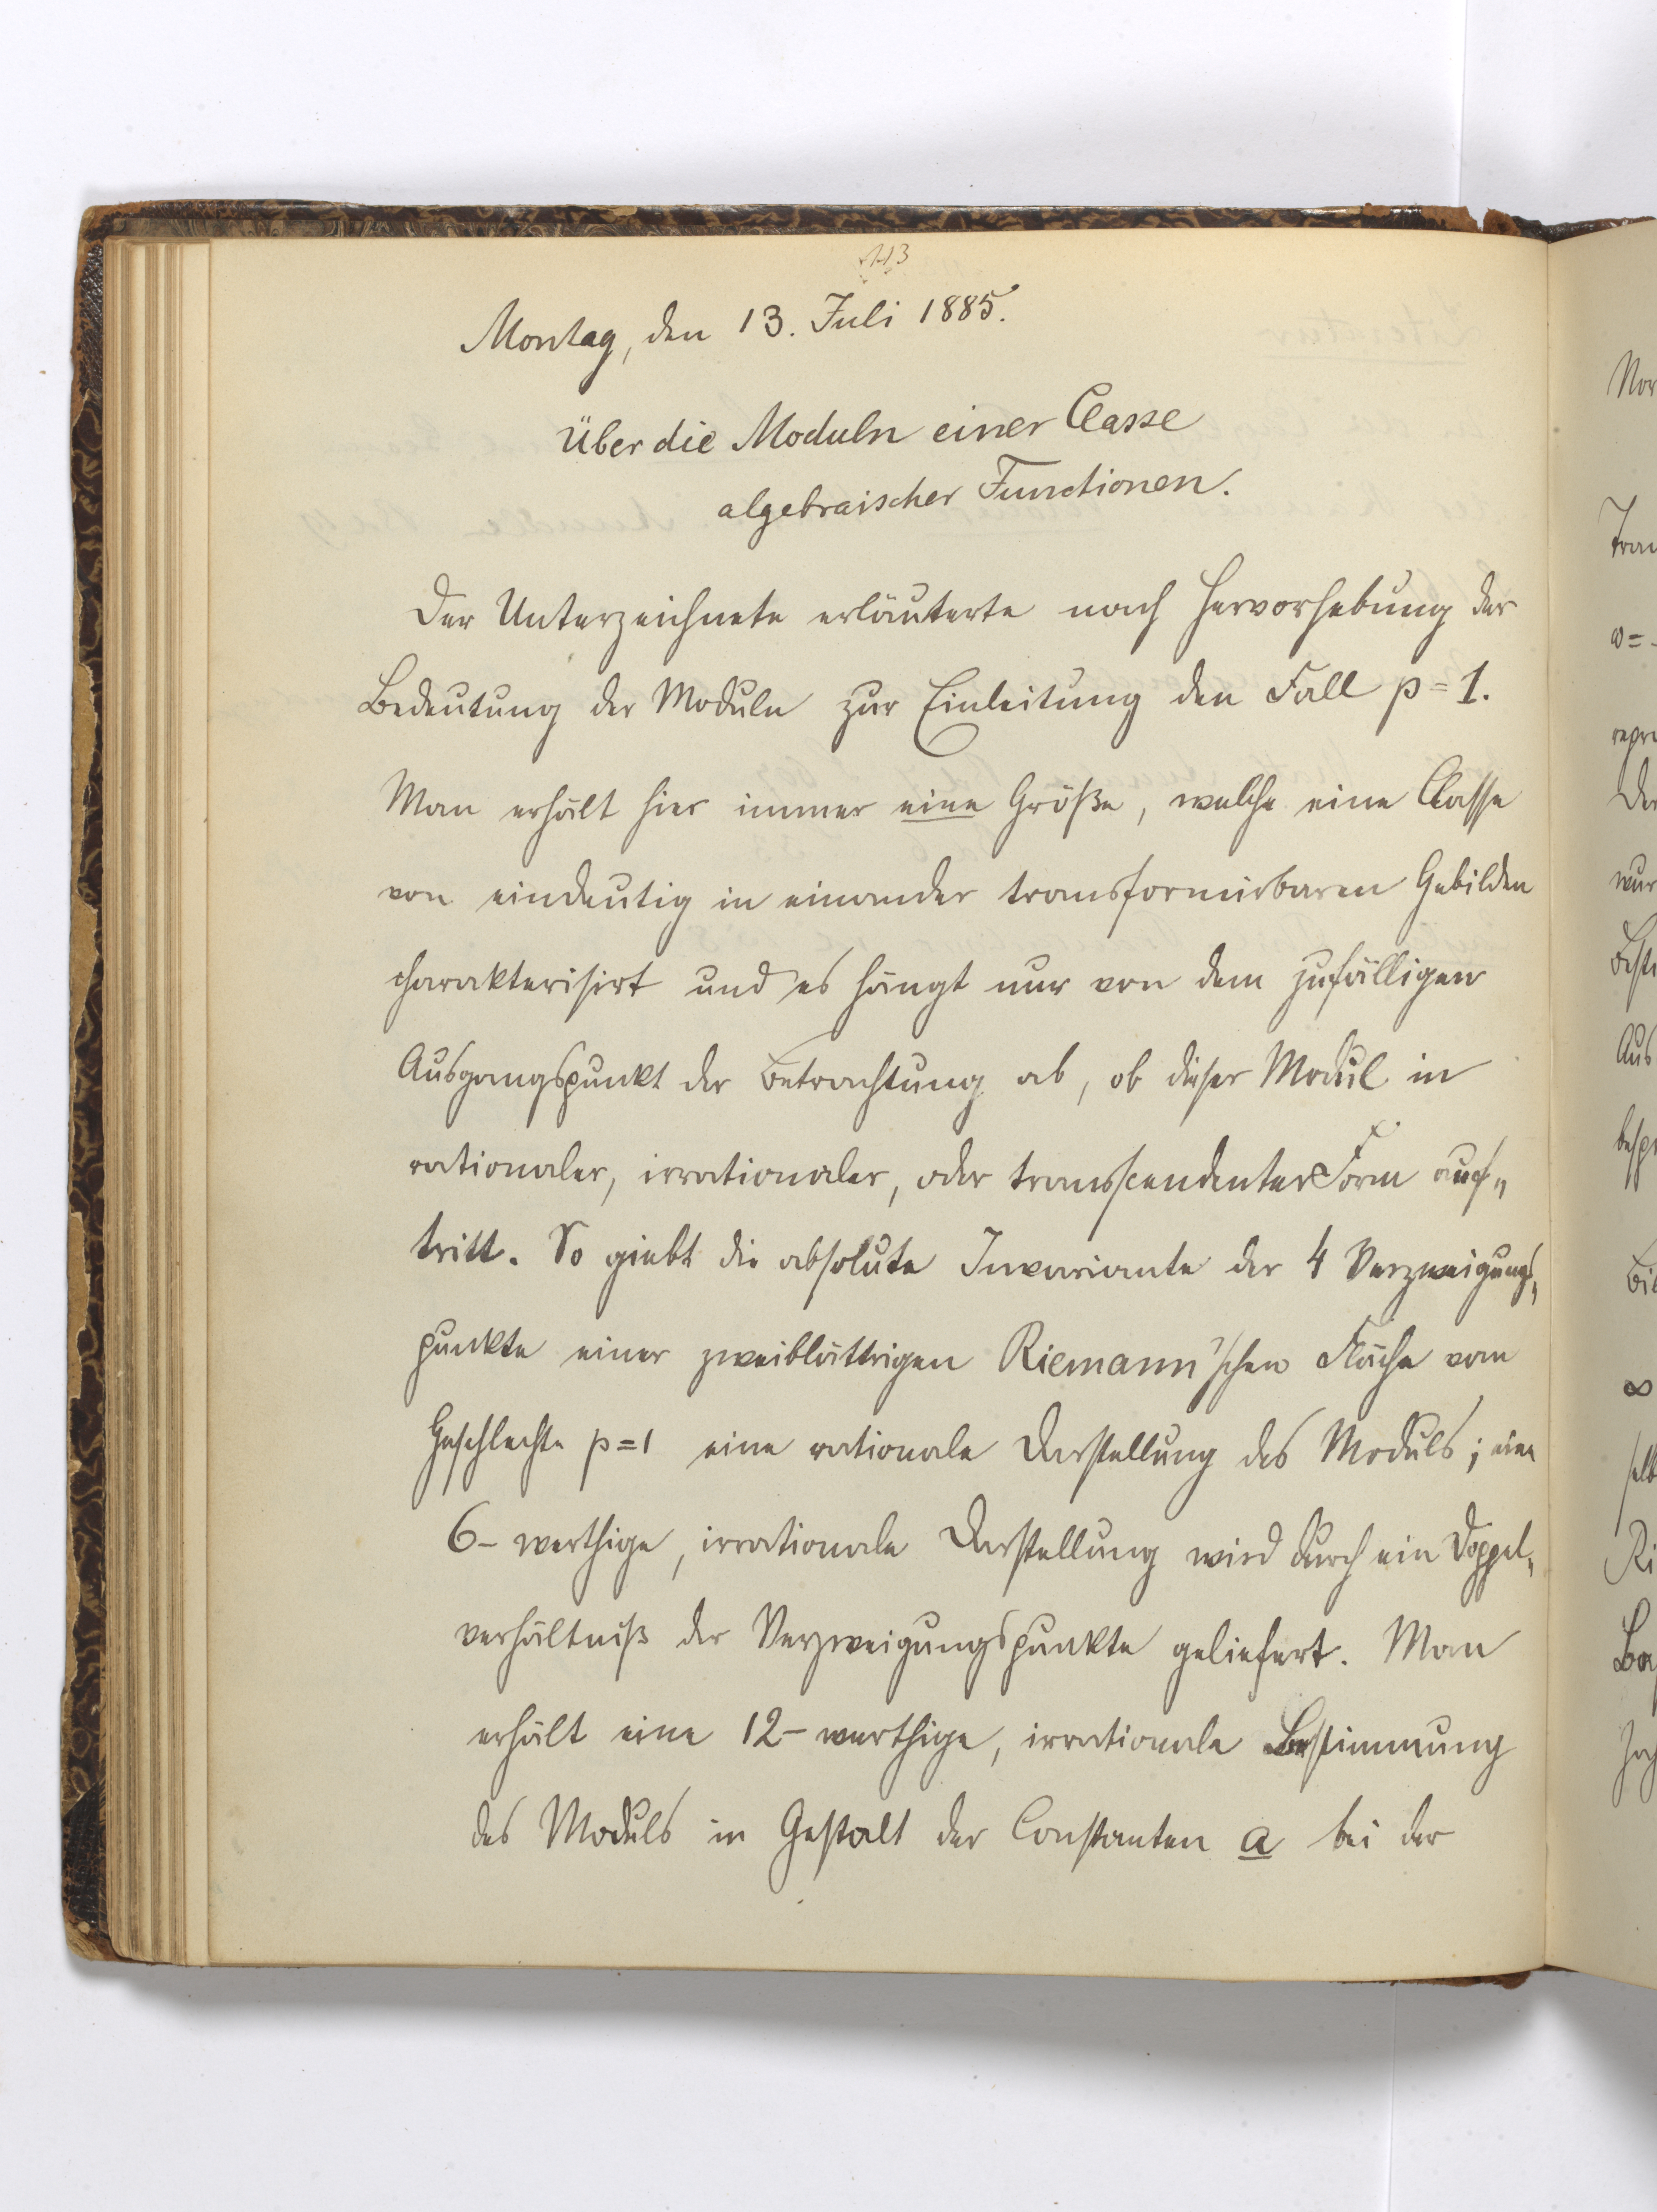 113
Montag, den 13. Juli 1885.
Über die Moduln einer Classe
algebraischer Functionen.
Der Unterzeichnete erläuterte nach Hervorhebung der
Bedeutung der Moduln zur Einleitung den Fall p=1.
Man erhält hier immer eine Größe, welche eine Classe
von eindeutig in einander transformirbaren Gebilden
charakterisirt und es hängt nur von dem zufälligen
Ausgangspunkt der Betrachtung ab, ob dieser Modul in
rationaler, irrationaler, oder transscendenter Form auf„
tritt. So giebt die absolute Invariante der 4 Verzweigungs„
punkte einer zweiblättrigen Riemann'schen Fläche vom
Geschlechte p=1 eine rationale Darstellung des Moduls; eine
6-werthige, irrationale Darstellung wird durch ein Doppel„
verhältniß der Verzweigungspunkte geliefert. Man
erhält eine 12-werthige, irrationale Bestimmung
des Moduls in Gestalt der Constanten a bei der